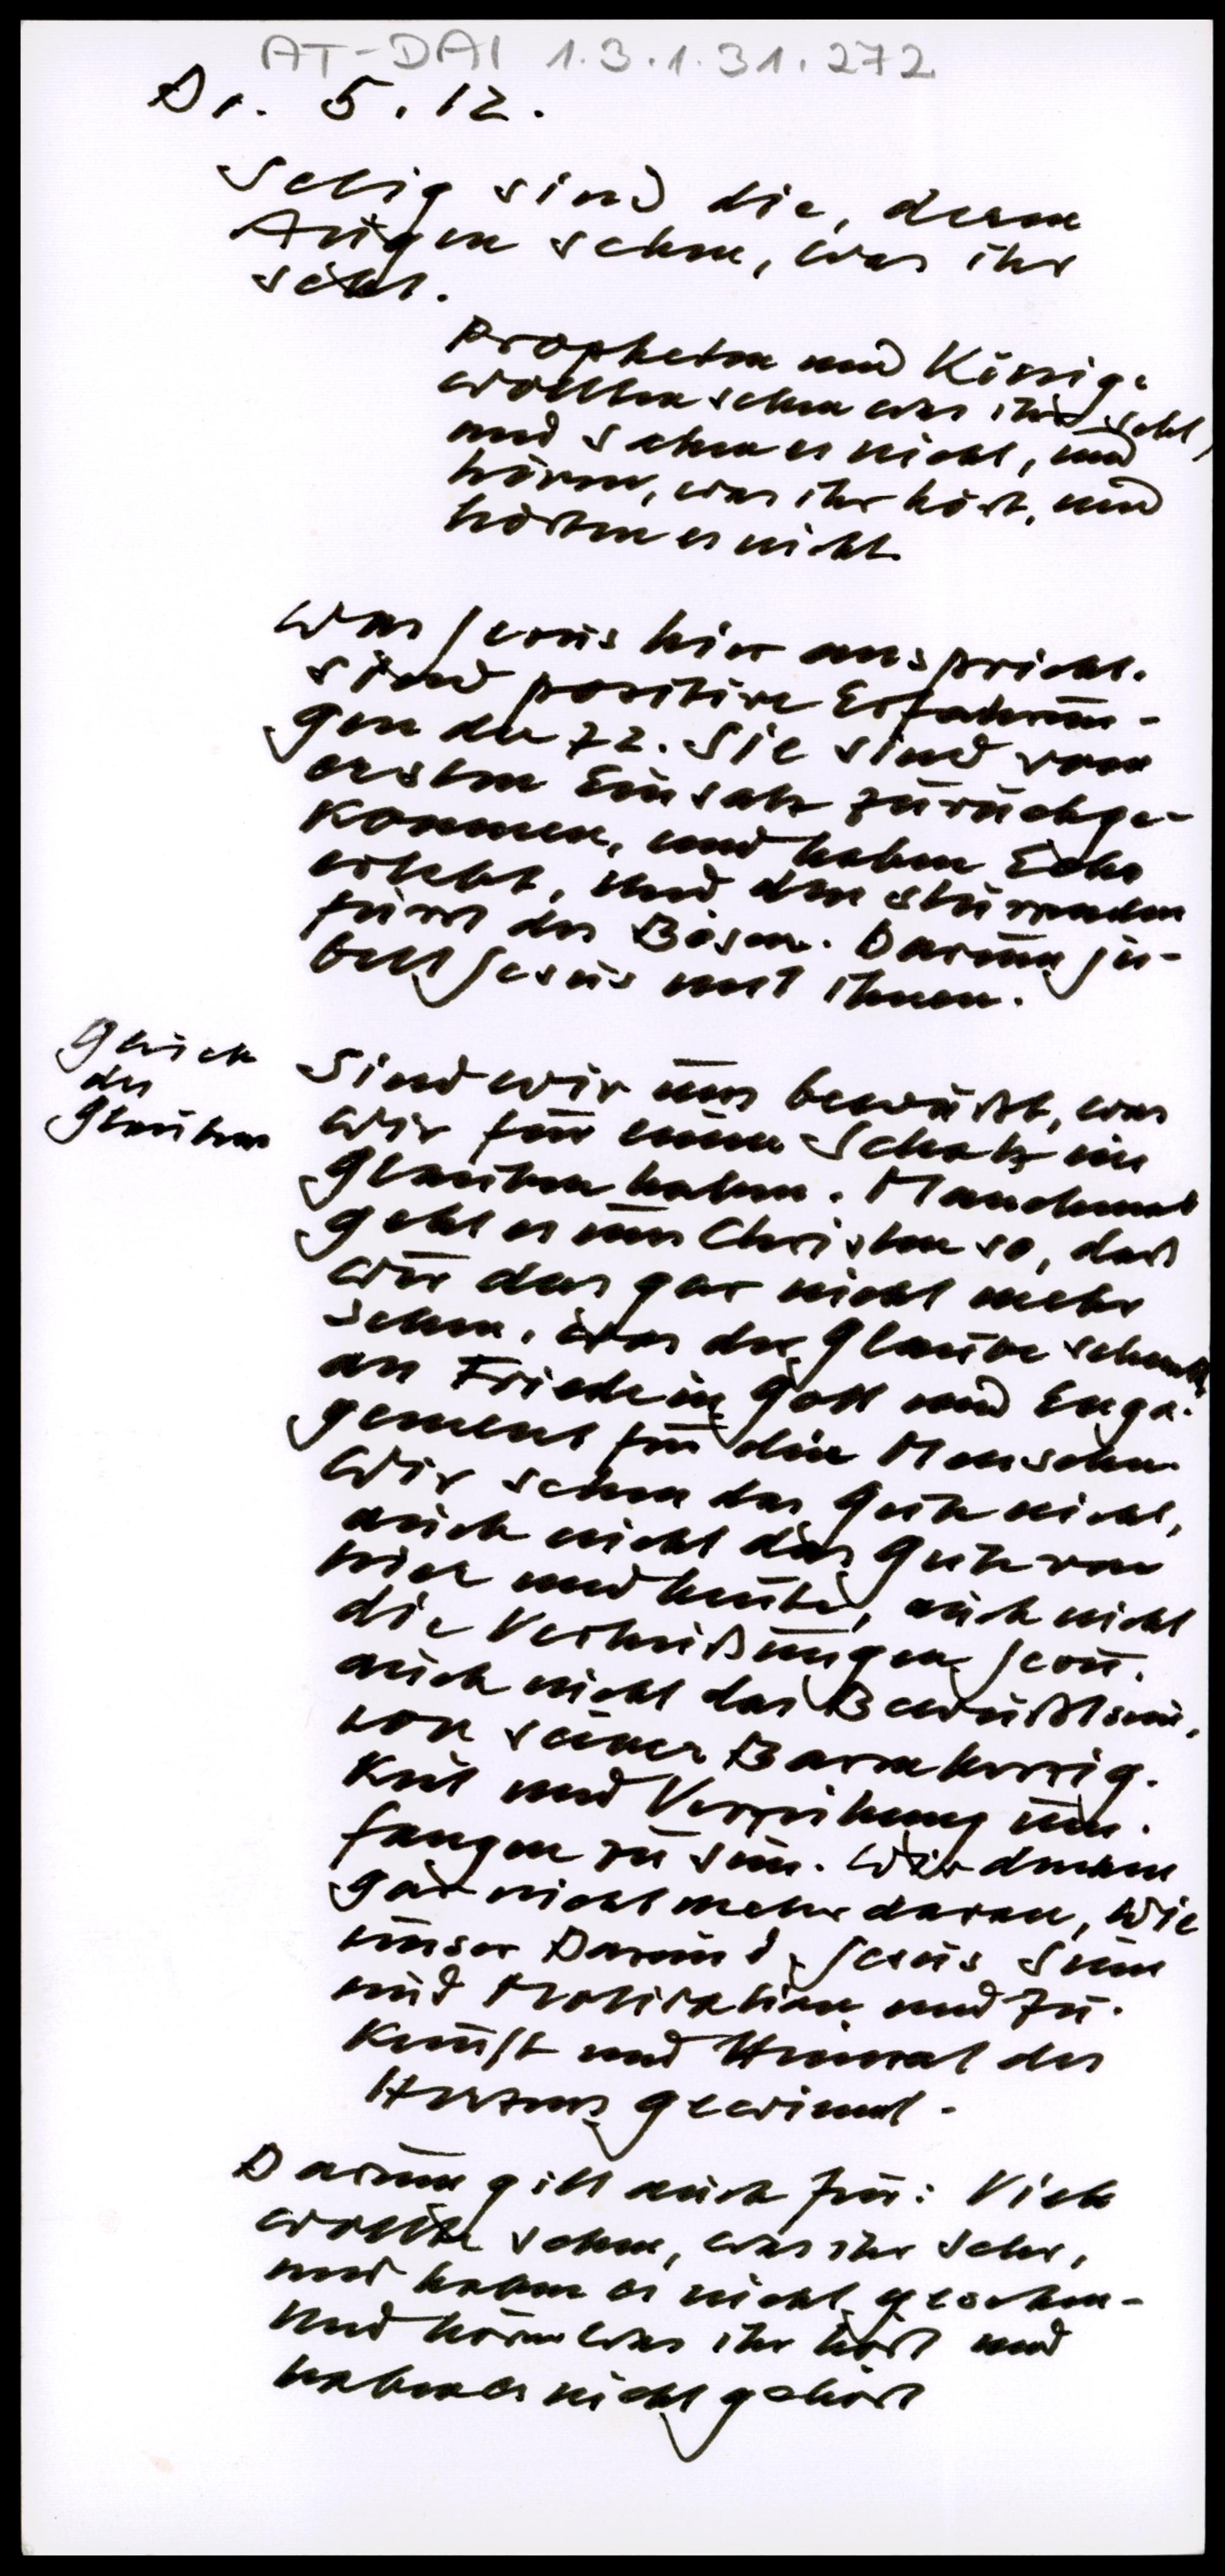 AT-DAI 1.3.1.31.272
Di. 5.12.
Selig sind die, deren
Augen sehen, was ihr
seht.
Propheten und Könige
wollten sehen was ihr seht,
und sahen es nicht, und
hören, was ihr hört, und
hörten es nicht.
Was Jesus hier anspricht.
sind positive Erfahrun-
gen der 72. Sie sind vom
ersten Einsatz zurückge-
kommen, und haben Echo
erlebt, und den stürzenden
Fürst des Bösen. Darum ju-
belt Jesus mit ihnen.
Glück
des
Glaubens
Sind wir uns bewußt, was
wir für einen Schatz im
Glauben haben. Manchmal
geht es uns Christen so, daß
wir das gar nicht mehr
sehen, was der Glaube schenkt,
an Friede in Gott und Enga-
gement für die Menschen.
Wir sehen das Gute nicht,
auch nicht das Gute von
hier und heute, auch nicht
die Verheißungen Jesu.
auch nicht das Bewußtsein,
von seiner Barmherzig-
keit und Verzeihung um-
fangen zu sein. Wir denken
gar nicht mehr daran, wie
unser Dasein d. Jesus Sinn
und Motivation und Zu-
kunft und Heimat des
Herzens gewinnt.
Darum gilt auch für: Viele
wollten sehen, was ihr seht,
und haben es nicht gesehen -
Und hören was ihr hört und
haben es nicht gehört